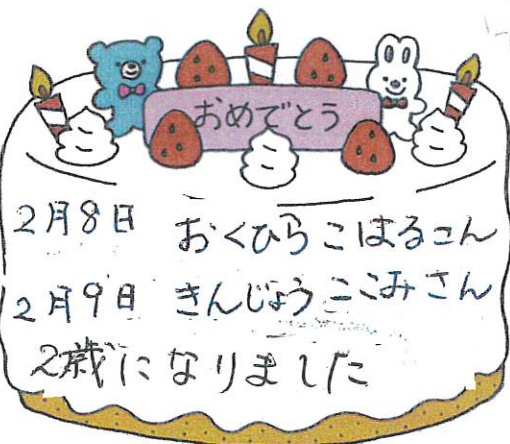 おめでとう
2月8日 おくひらこはるさん
2月9日 きんじょうここみさん
2歳になりました